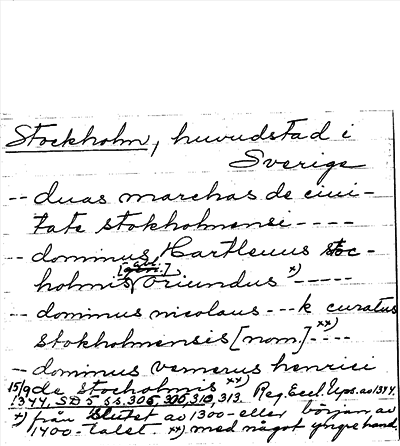 Stockholm, huvudstad i
Sverige
-- duas marchas de ciui-
tate stokholmensi ----
-- dominus Hartleuus stoc-
[abl.]
holmis oriundus *) -----
-- dominus nicolaus --- k curatus
stokholmensis [nom.] **) ----
-- dominus vernerus henrici
de stocholmis **)
15/9 1344, SD 5 ss. 305, 306, 310, 313. Reg. Eccl. Ups. ao 1344.
*) från slutet av 1300- eller början av
1400-talet. **) med något yngre hand.